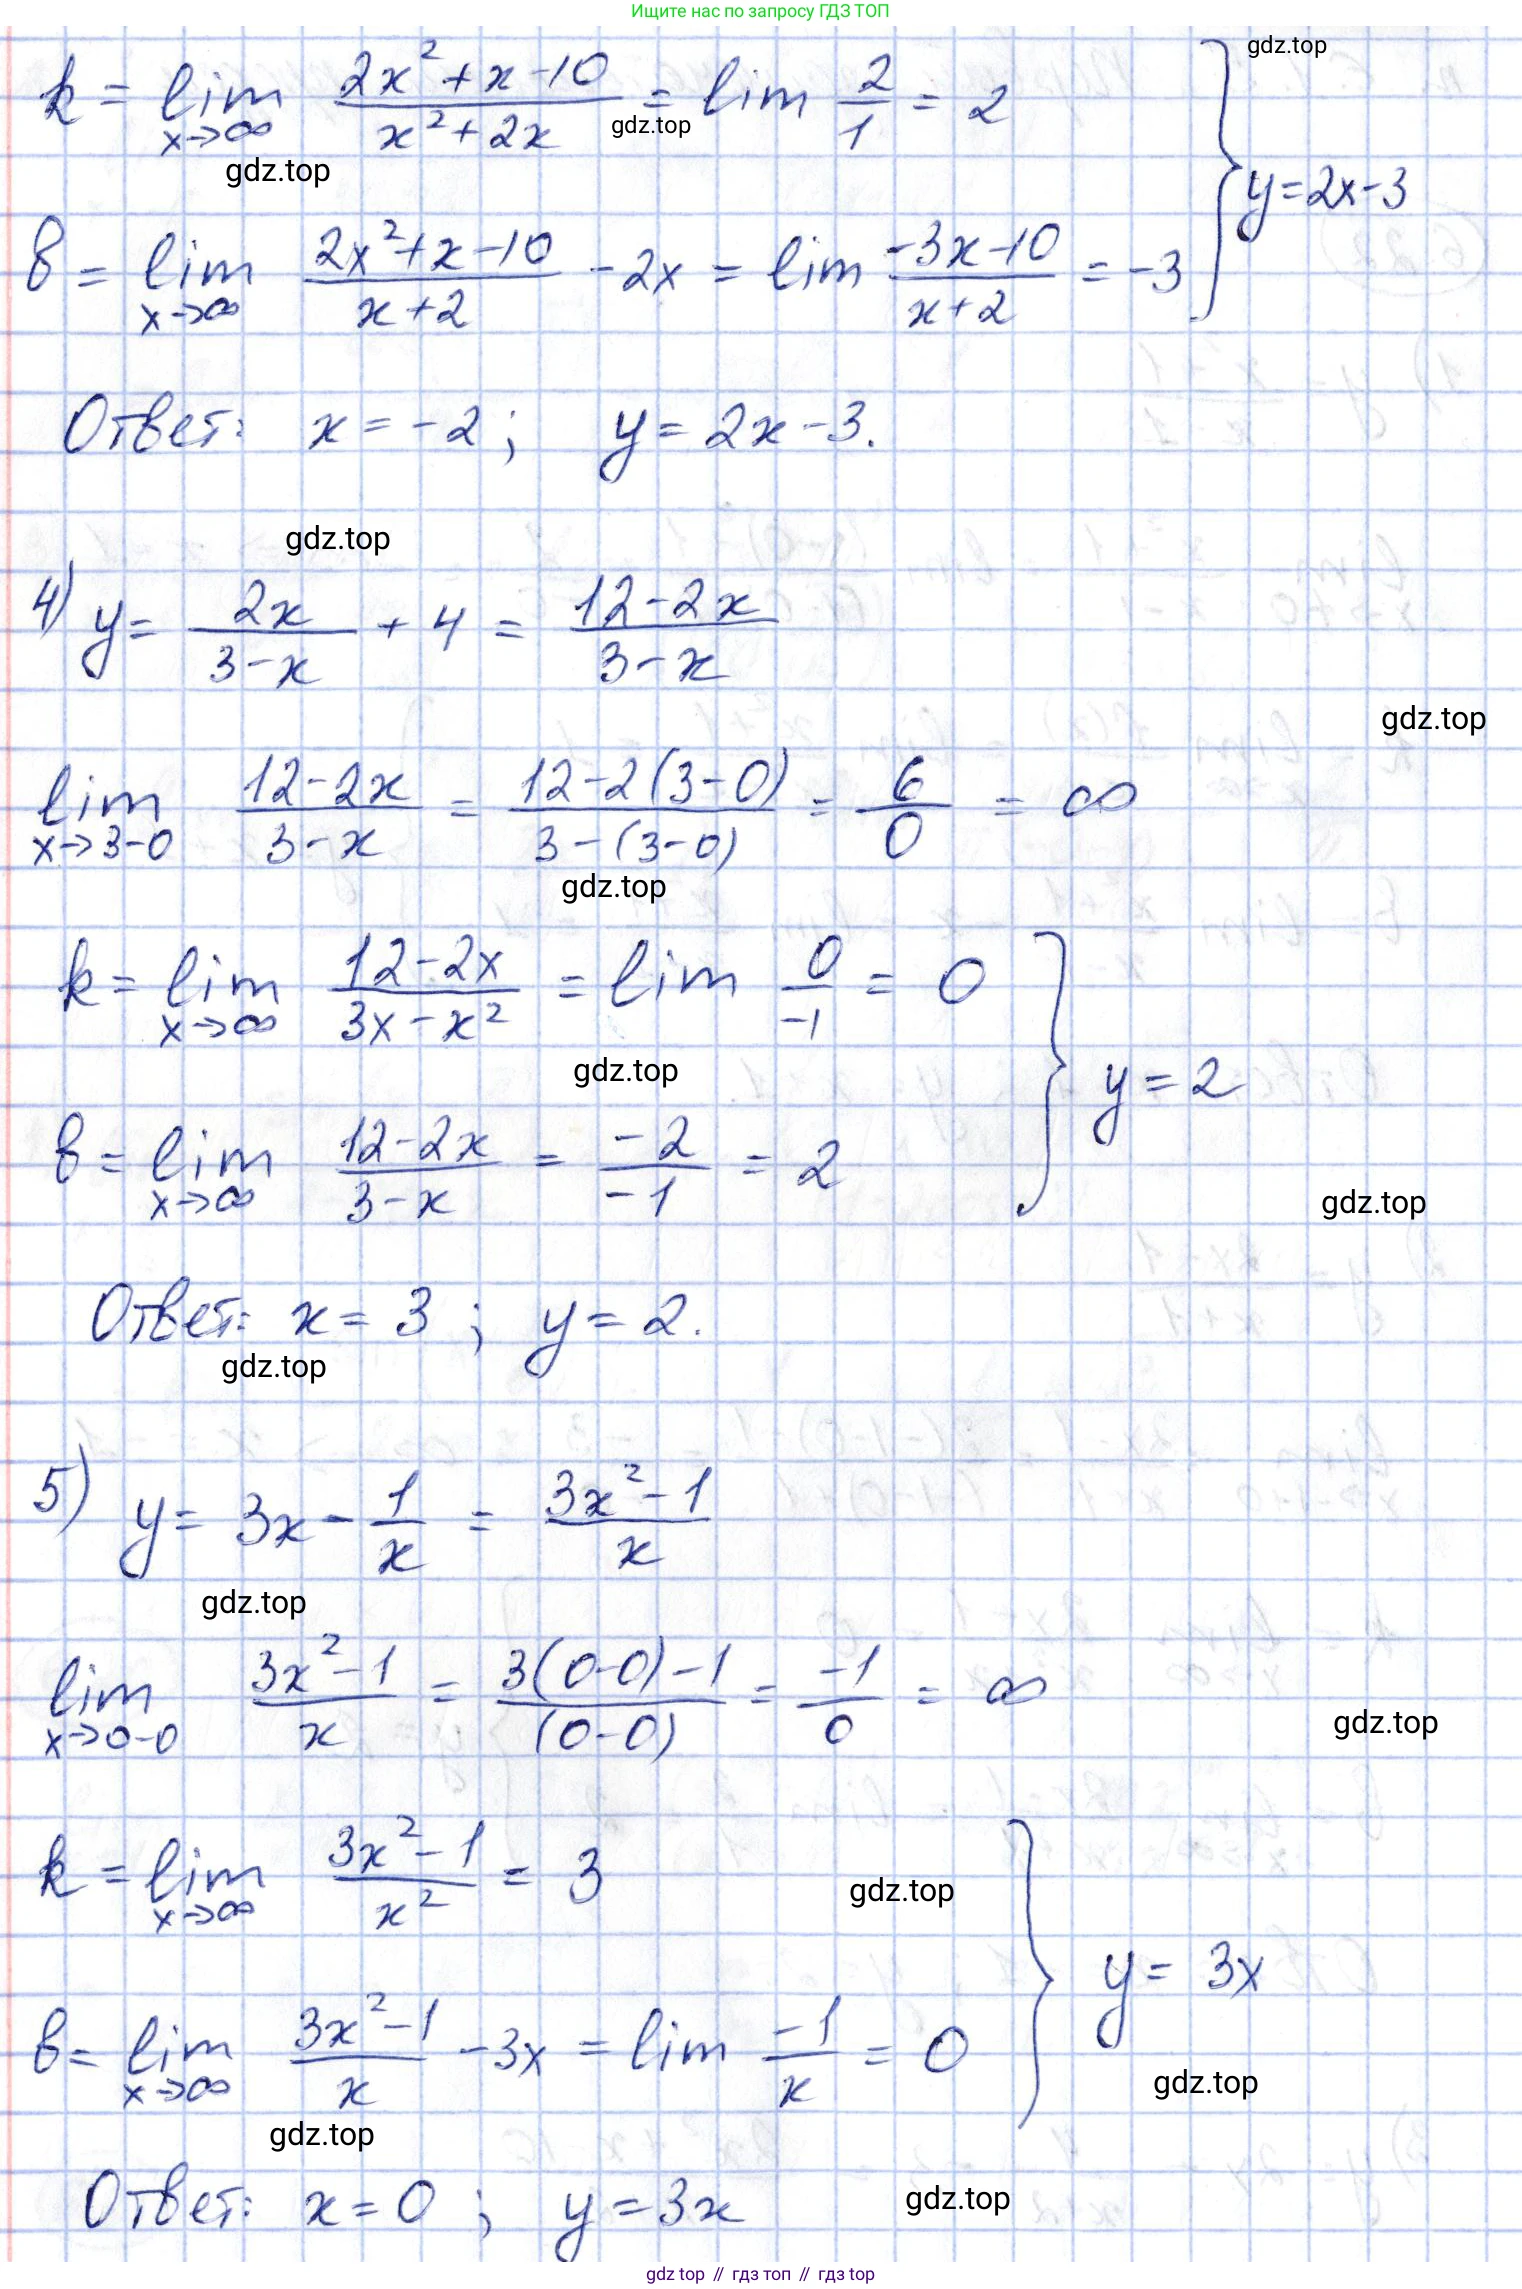 Ищите нас по запросу ГДЗ ТОП
gdz.top
k = lim x→∞ (2x²+x-10)/(x²+2x) = lim 2/1 = 2
gdz.top
gdz.top
y=2x-3
в = lim x→∞ (2x²+x-10)/(x+2) - 2x = lim (-3x-10)/(x+2) = -3
Ответ: x = -2 ; y = 2x - 3.
gdz.top
4) y = 2x/(3-x) + 4 = (12-2x)/(3-x)
gdz.top
lim x→3-0 (12-2x)/(3-x) = (12-2(3-0))/(3-(3-0)) = 6/0 = ∞
gdz.top
k = lim x→∞ (12-2x)/(3x-x²) = lim 0/-1 = 0
gdz.top
y = 2
в = lim x→∞ (12-2x)/(3-x) = -2/-1 = 2
gdz.top
Ответ: x = 3 ; y = 2.
gdz.top
5) y = 3x - 1/x = (3x²-1)/x
gdz.top
lim x→0-0 (3x²-1)/x = (3(0-0)-1)/(0-0) = -1/0 = ∞
gdz.top
k = lim x→∞ (3x²-1)/x² = 3
gdz.top
y = 3x
в = lim x→∞ (3x²-1)/x - 3x = lim -1/x = 0
gdz.top
gdz.top
Ответ: x = 0 ; y = 3x
gdz.top
gdz top // гдз топ // гдз top